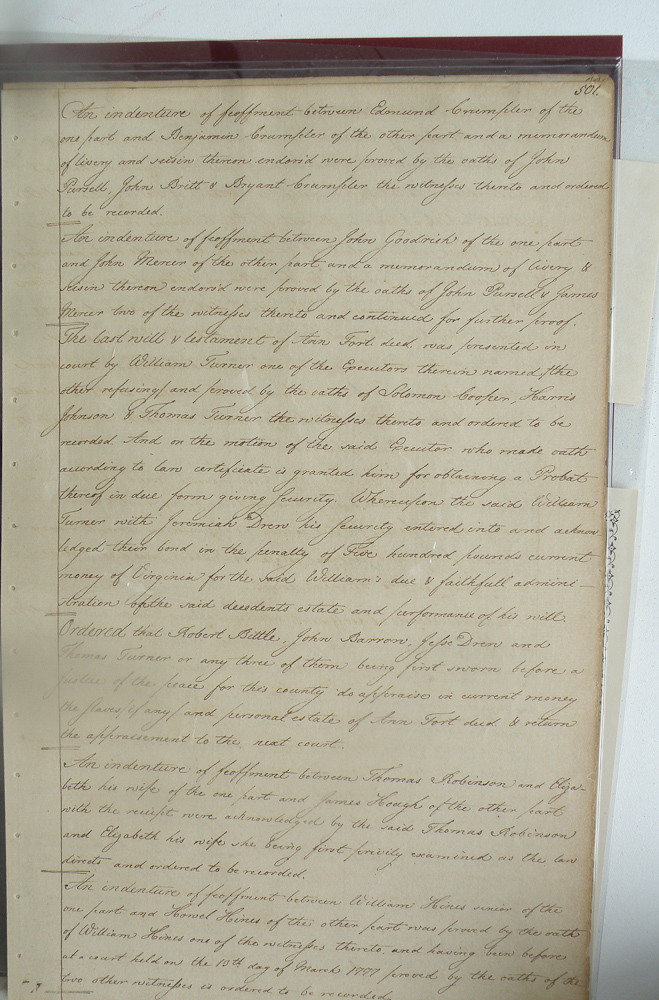 501.
An indenture of feoffment between Edmund Crumpler of the
one part and Benjamin Crumpler of the other part and a memorandum
of livery and seisin thereon endors'd were proved by the oaths of John
Pursell, John Britt & Bryant Crumpler the witnesses thereto and ordered
to be recorded.
An indenture of feoffment between John Goodrich of the one part
and John Mercer of the other part and a memorandum of livery &
seisin thereon endors'd were proved by the oaths of John Pursell & James
Mercer two of the witnesses thereto and continued for further proof.
The last will & testament of Ann Fort decd. was presented in
court by William Turner one of the Executors therein named /the
other refusing/ and proved by the oaths of Solomon Cooper, Harris
Johnson & Thomas Turner the witnesses thereto and ordered to be
recorded. And on the motion of the said Executor who made oath
according to law certificate is granted him for obtaining a Probat
thereof in due form giving security. Whereupon the said William
Turner with Jeremiah Drew his security entered into and acknow
ledged their bond in the penalty of Five hundred pounds current
money of Virginia for the said William's due & faithfull admini-
stration of the said decedents estate and performance of his will.
Ordered that Robert Bittle, John Barrow, Jesse Drew and
Thomas Turner or any three of them being first sworn before a
justice of the peace for the county do appraise in current money
the slaves /if any/ and personal estate of Ann Fort decd. & return
the appraisement to the next court.
An indenture of feoffment between Thomas Robinson and Eliza-
beth his wife of the one part and James Hough of the other part
with the receipt were acknowledged by the said Thomas Robinson
and Elizabeth his wife she being first privily examined as the law
directs and ordered to be recorded.
An indenture of feoffment between William Hines senior of the
one part and Howel Hines of the other part was proved by the oath
of William Hines one of the witnesses thereto, and having been before
at a court held on the 13th day of March 1777 proved by the oaths of the
two other witnesses is ordered to be recorded